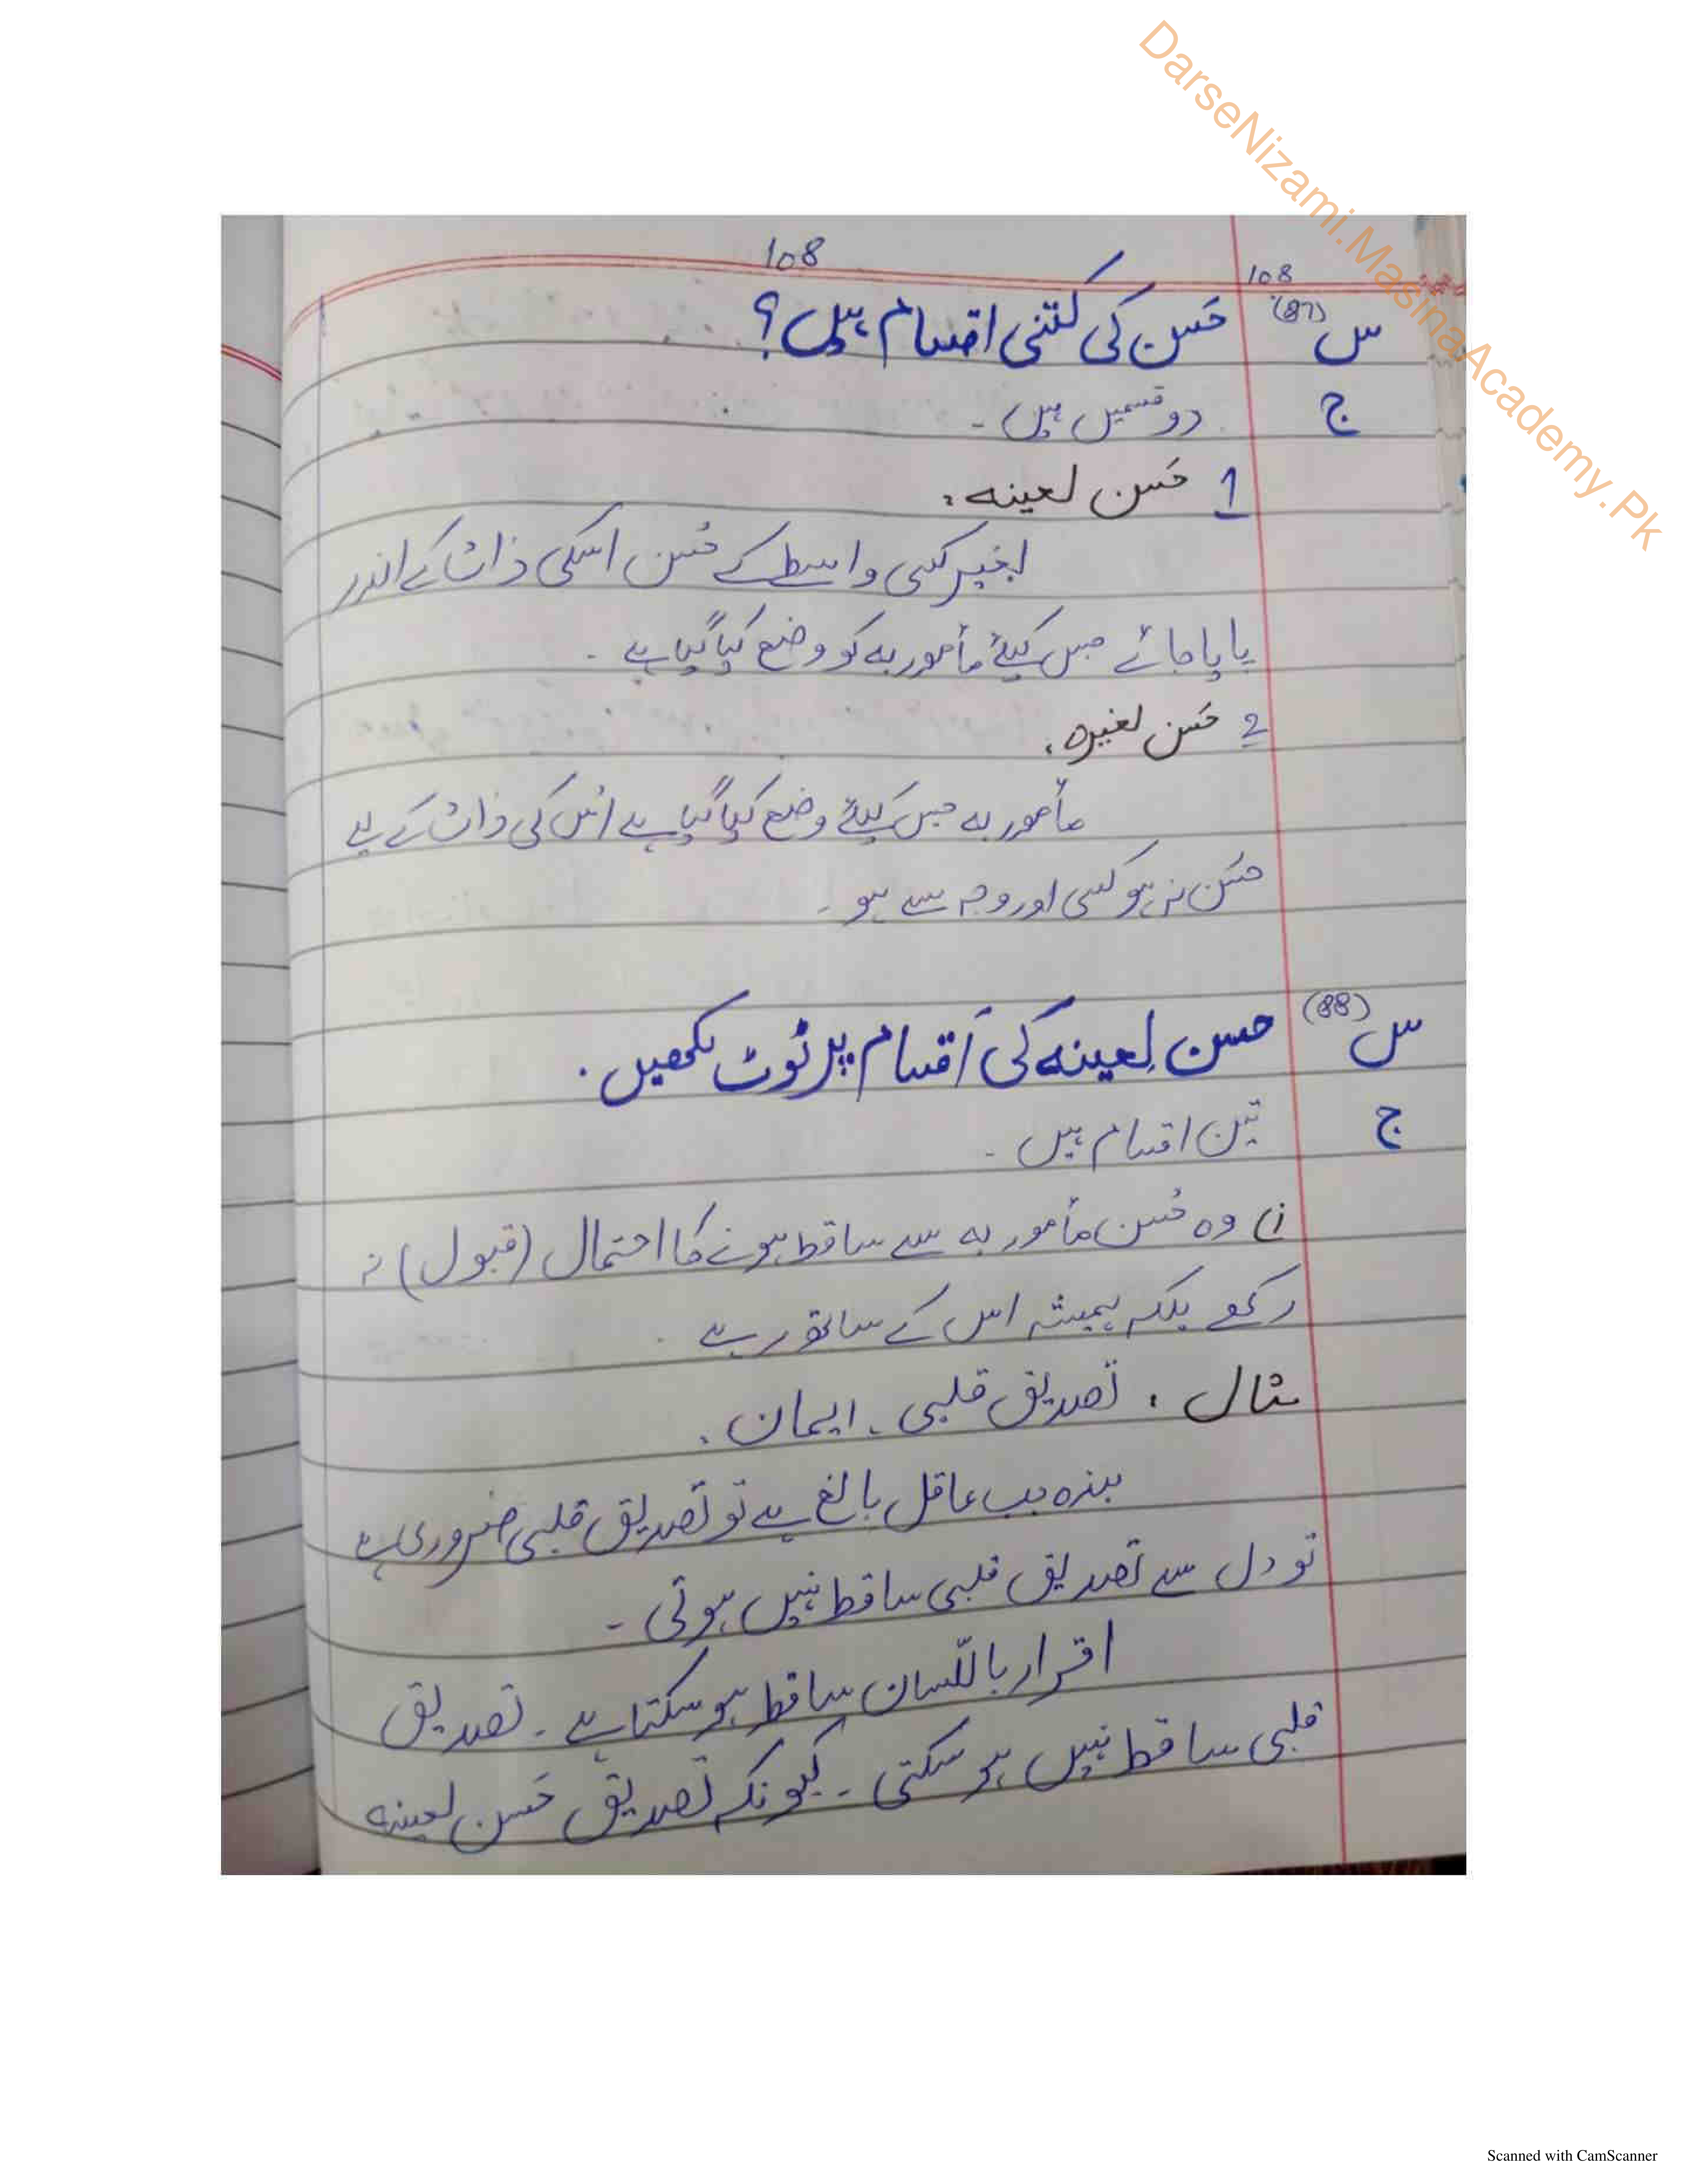 DarseNizami.MasinaAcademy.Pk
108
108
س (87) حَسن کی کتنی اقسام ہیں؟
ج دو قسمیں ہیں۔
1 حَسن لعینہ:
بغیر کسی واسطے کے حُسن اسکی ذات کے اندر
پایا جائے جس کیلئے مأمور بہ کو وضع کیا گیا ہے۔
2 حَسن لغیرہ:
مأمور بہ جس کیلئے وضع کیا گیا ہے اُس کی ذات کے لیے
حسَن نہ ہو کسی اور وجہ سے ہو۔
س (88) حسن لِعینہ کی اَقسام پر نوٹ لکھیں۔
ج تین اقسام ہیں۔
i) وہ حُسن مأمور بہ سے ساقط ہونے کا احتمال (قبول) نہ
رکھے بلکہ ہمیشہ اس کے ساتھ رہے۔
مثال: تصدیق قلبی۔ ایمان۔
بندہ جب عاقل بالغ ہے تو تصدیق قلبی ضروری ہے
تو دل سے تصدیق قلبی ساقط نہیں ہوتی۔
اقرار باللّسان ساقط ہو سکتا ہے۔ تصدیق
قلبی ساقط نہیں ہو سکتی۔ کیونکہ تصدیق حَسن لعینہ
Scanned with CamScanner